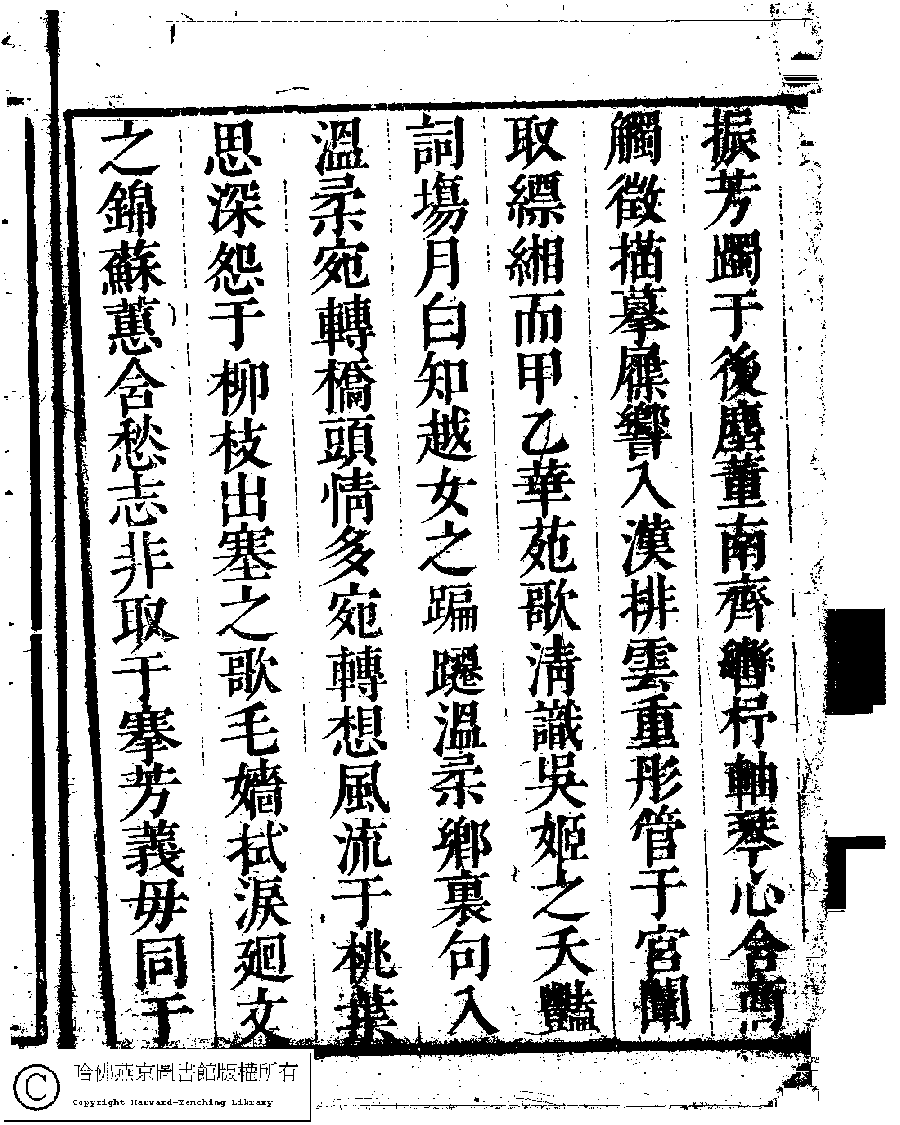 振芳躅于後塵董南齊轡杼軸琴心含商
觸徵描摹屧響入漢排雲重彤管于宮闈
取縹緗而甲乙華苑歌淸識吳姬之夭豔
詞塲月白知越女之蹁躚溫柔鄉裏句入
溫柔宛轉橋頭情多宛轉想風流于桃葉
思深怨于柳枝出塞之歌毛嬙拭淚廻文
之錦蘇蕙含愁志非取于搴芳義毋同于
哈佛燕京圖書館版權所有
Copyright Harvard-Yenching Library